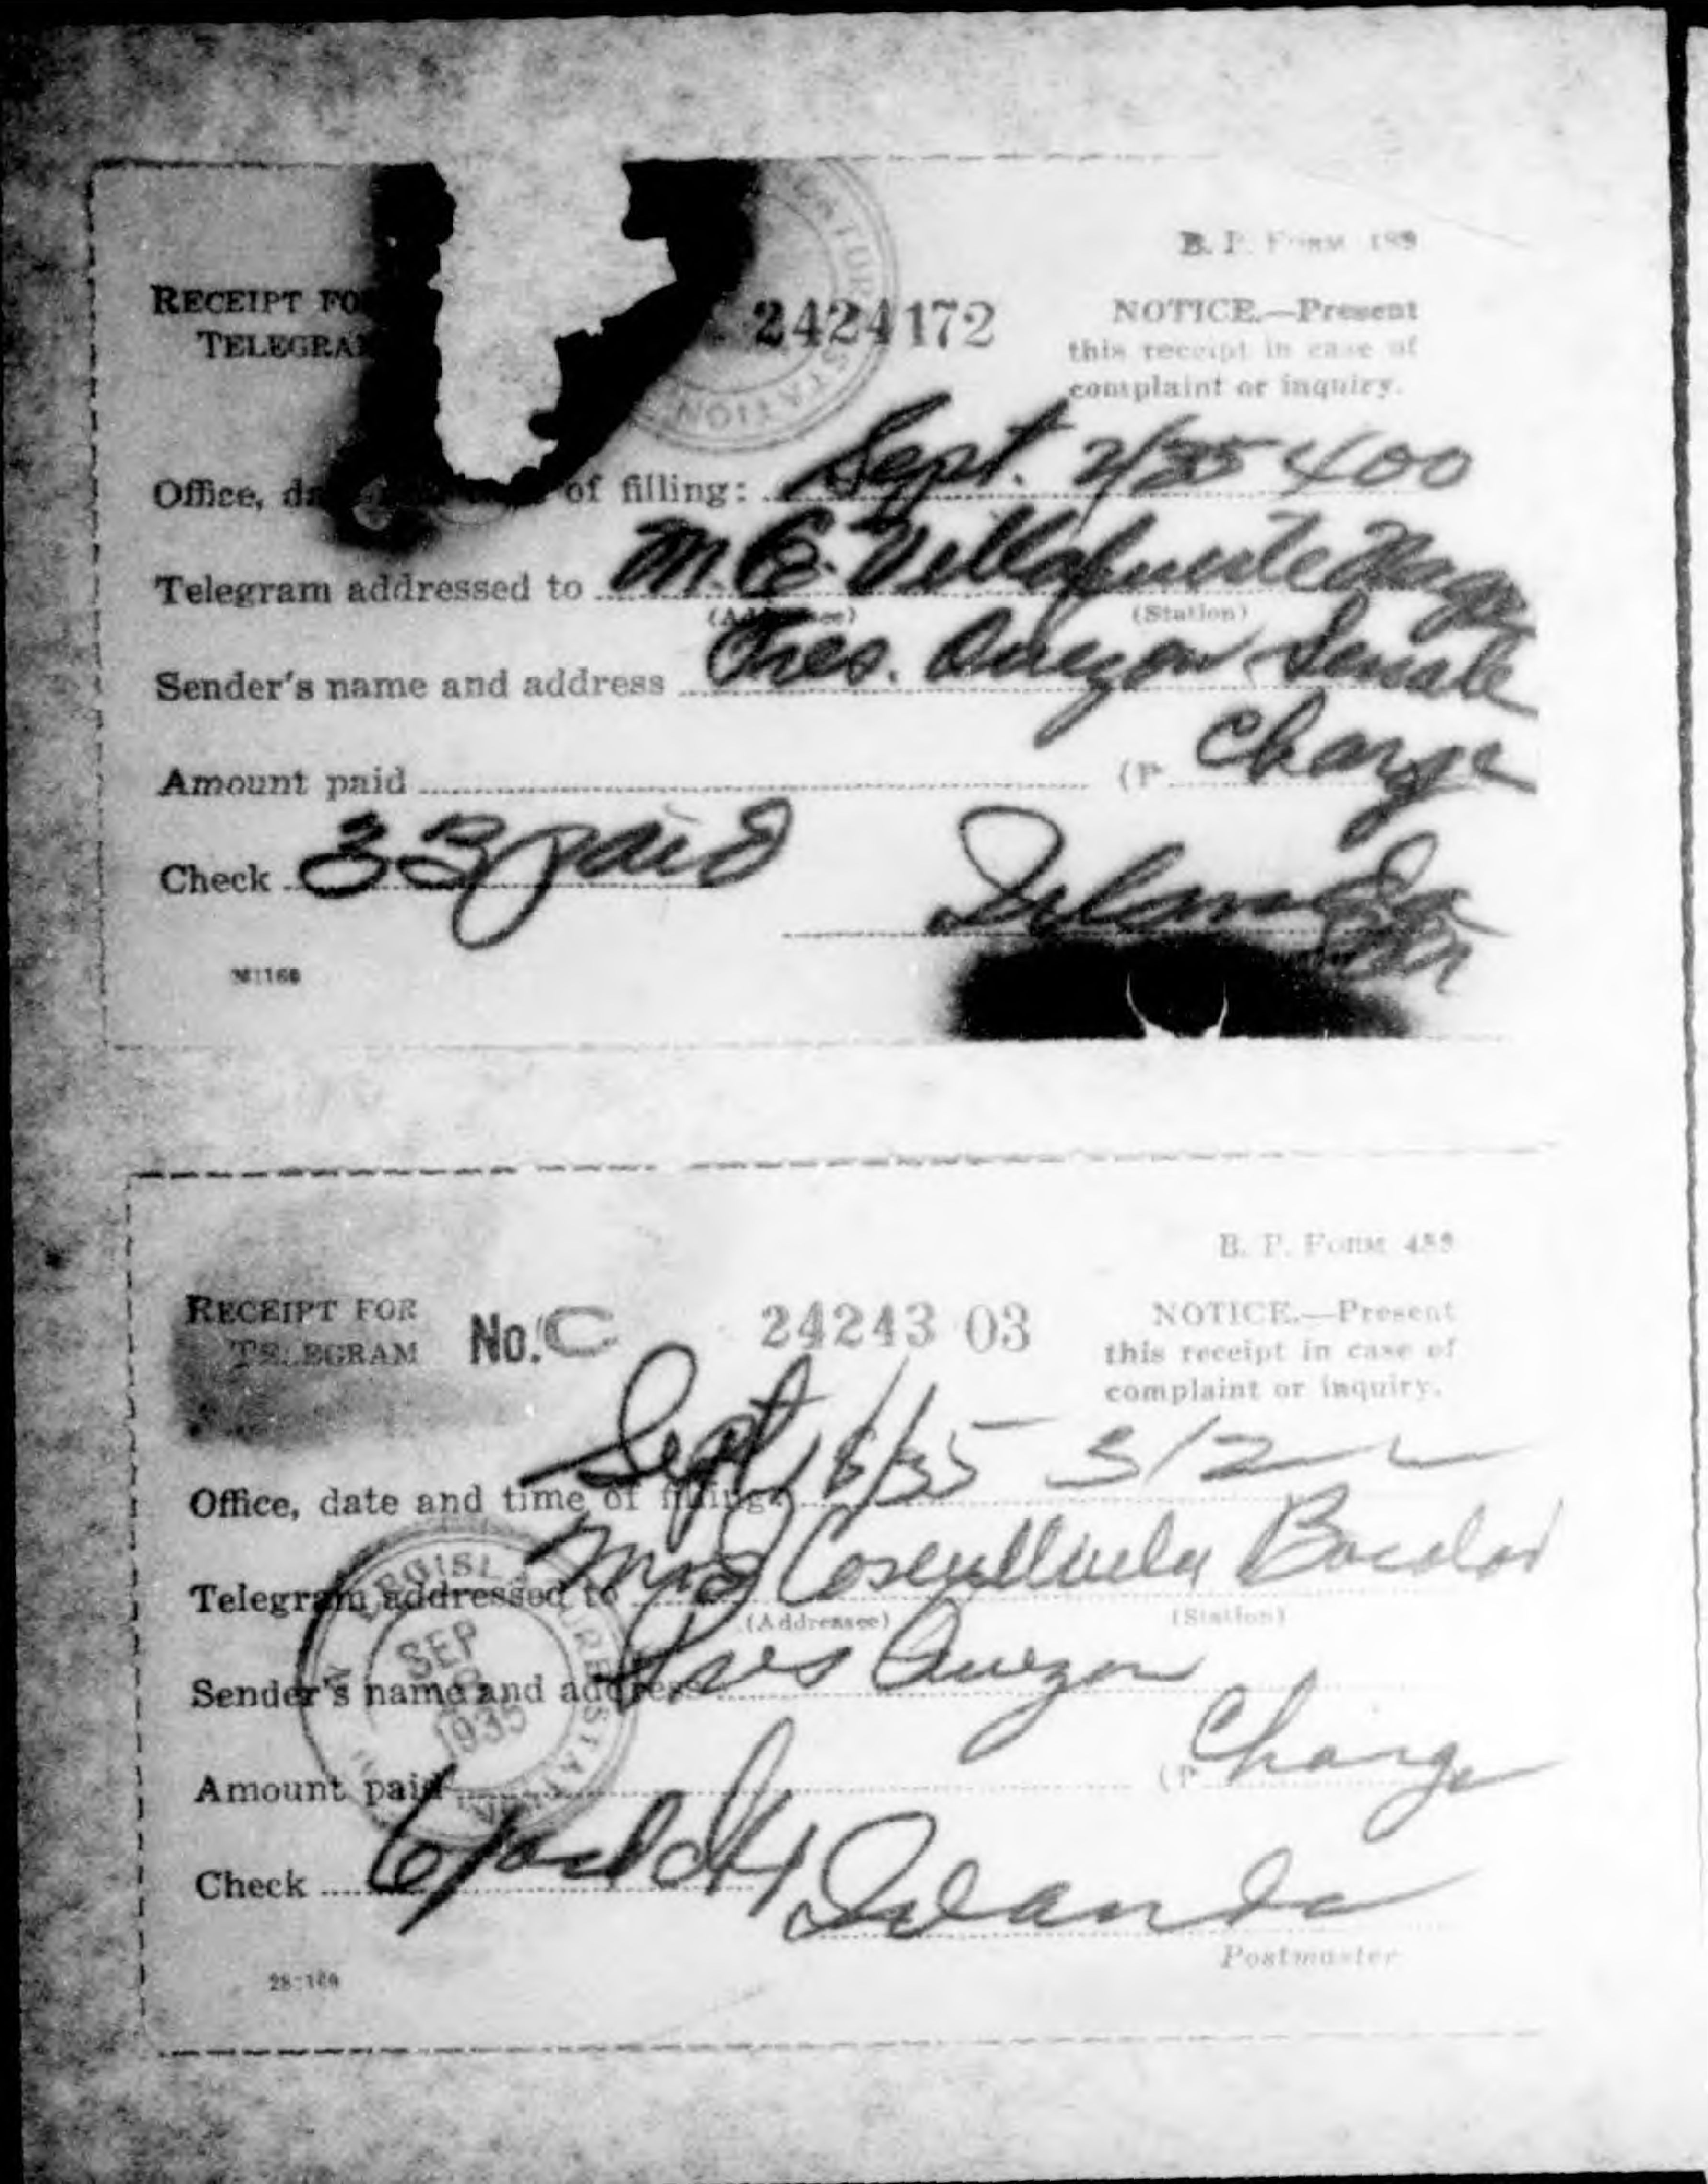 B. P. FORM 489
RECEIPT FO
TELEGRA
2424172
NOTICE.—Present
this receipt in case of
complaint or inquiry.
STATION
Office, da of filling: Sept. 2/35 400
Telegram addressed to M. E. Villafuerte Naga
(Addressee) (Station)
Sender's name and address Pres. Quezon Senate
Amount paid (P Charge
Check 33 paid
28:160
B. P. FORM 489
RECEIPT FOR
TELEGRAM
No. C 24243 03
NOTICE.—Present
this receipt in case of
complaint or inquiry.
Office, date and time of filling: Sept 18/35 312
Telegram addressed to Mrs
(Addressee) (Station)
LEGISLATURE STATION
SEP
1935
Sender's name and address Pres Quezon
Amount paid (P Charge
Check 6 paid
Postmaster
28:160